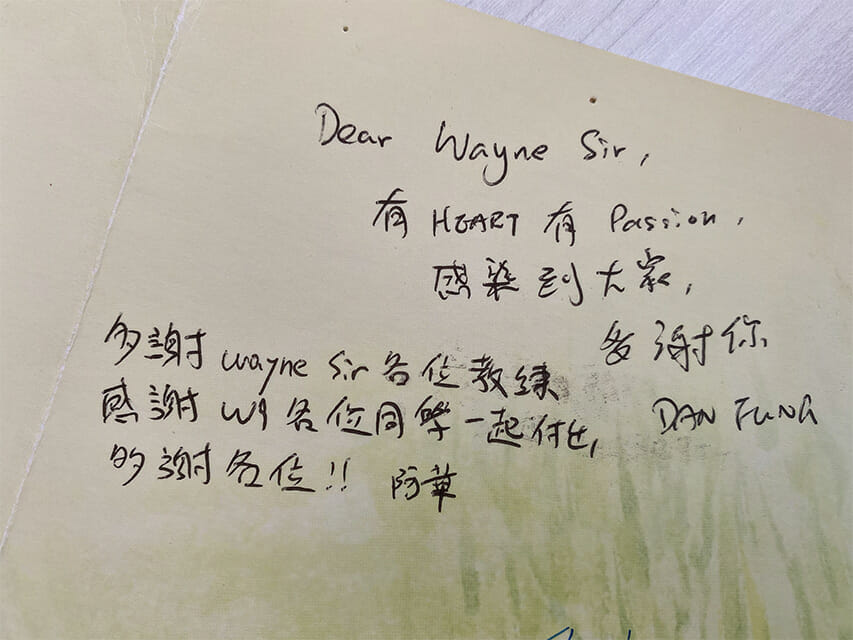 Dear Wayne Sir,
有 HEART 有 Passion,
感染到大家,
多謝你
DAN FUNG
多謝 Wayne Sir 各位教練
感謝 W9 各位同學一起付出,
多謝各位!! 阿華